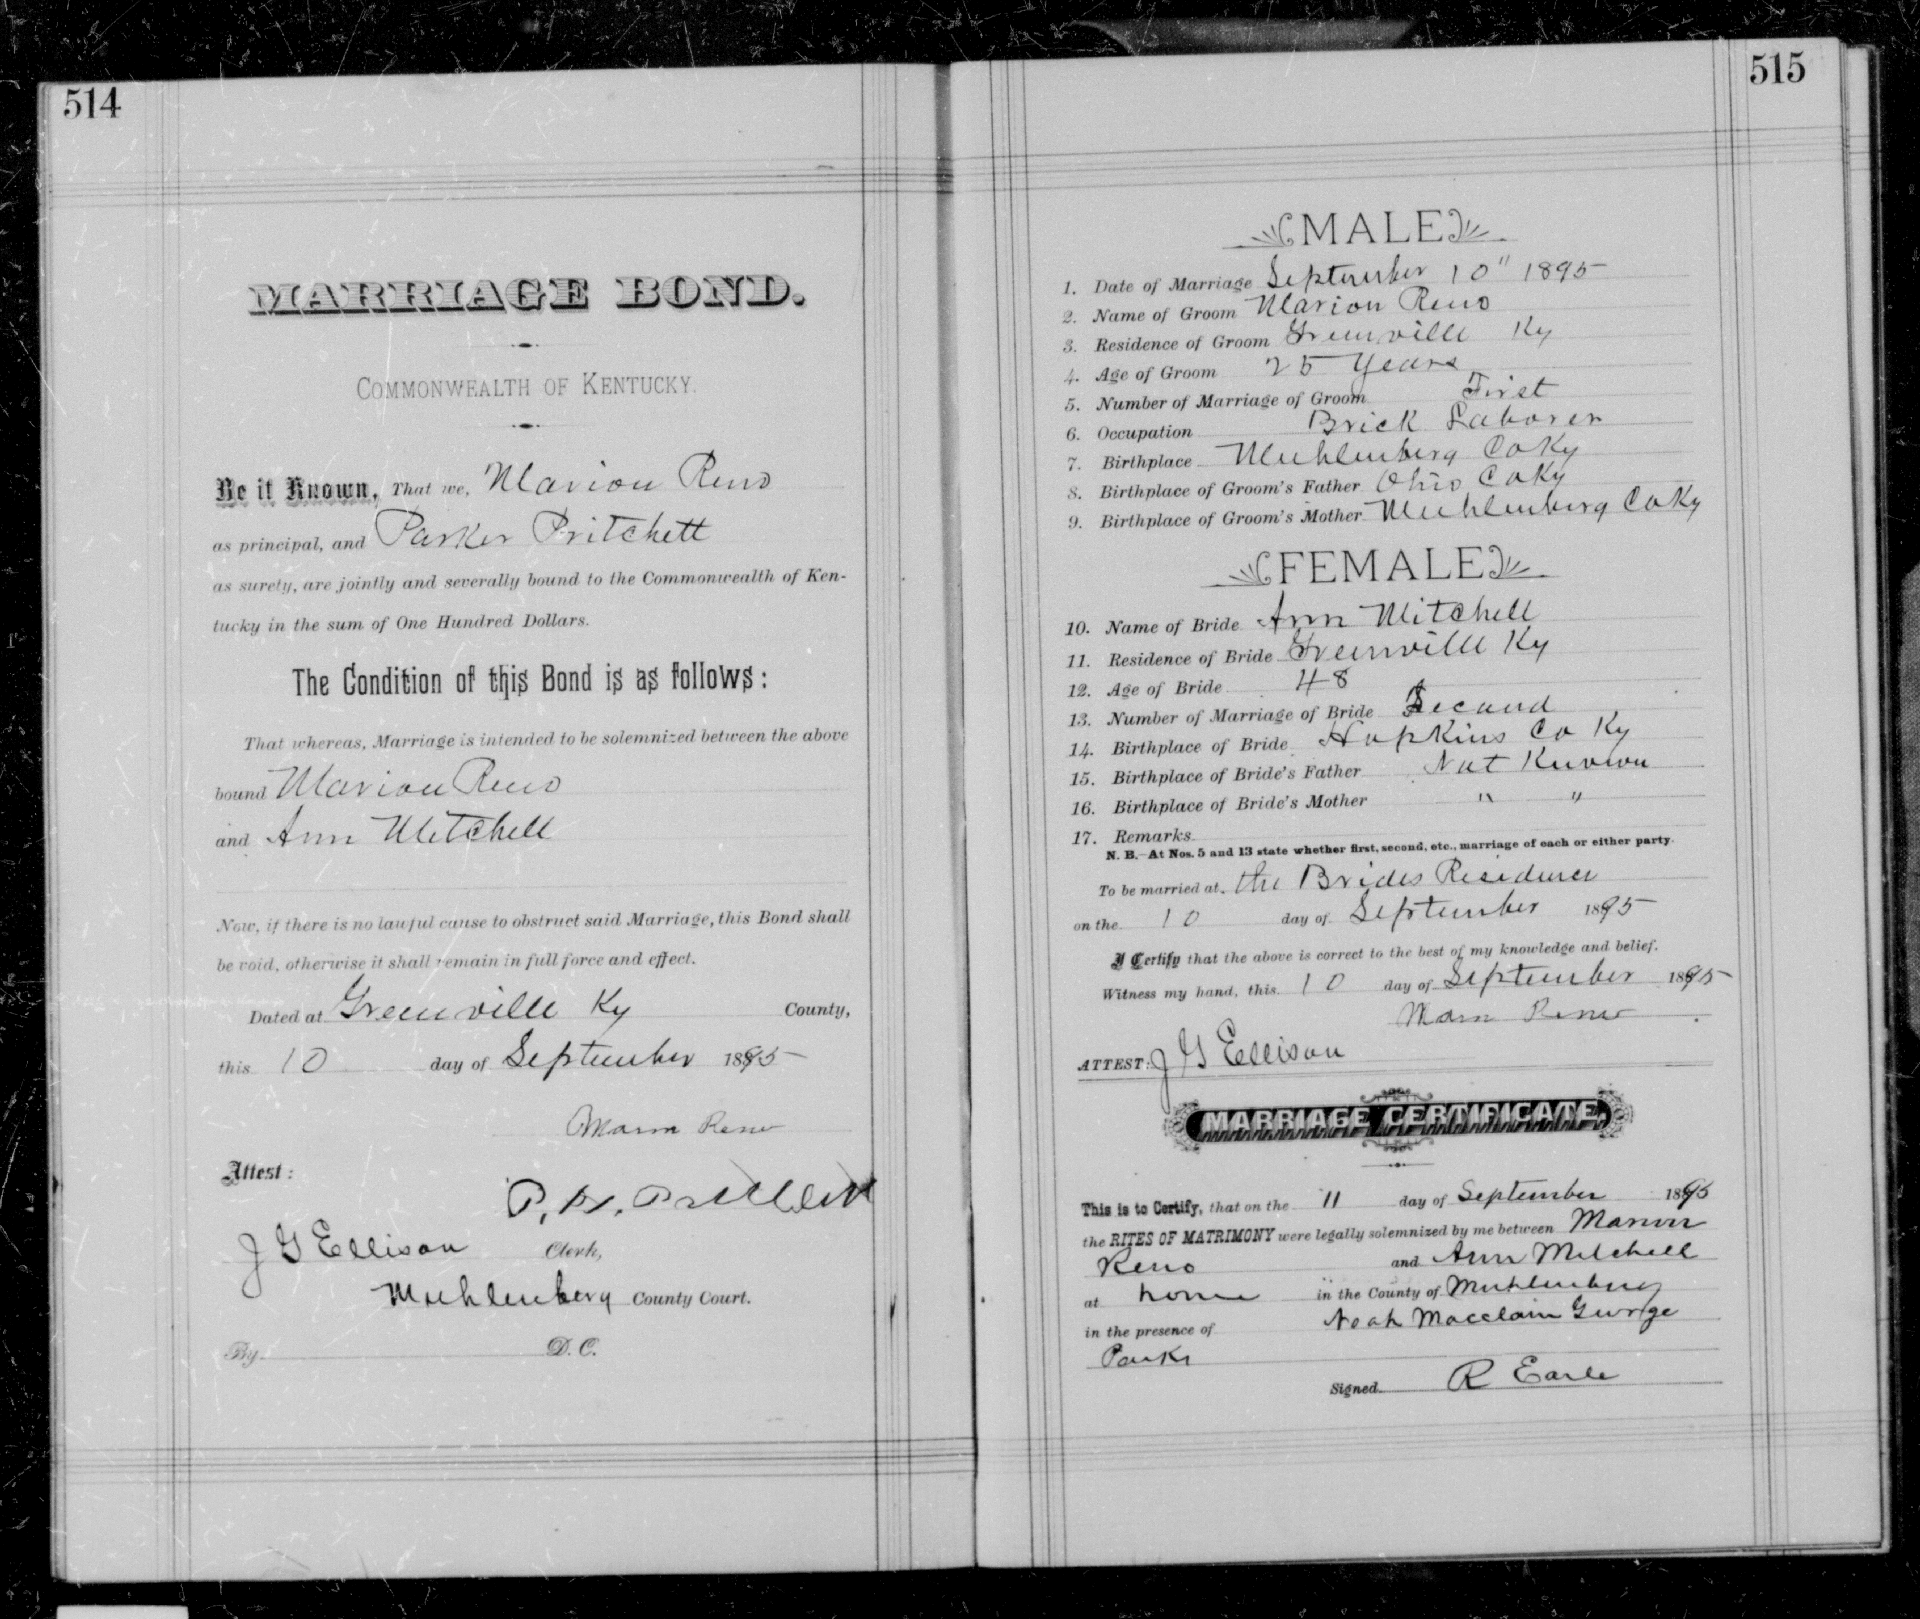 514
MARRIAGE BOND.
COMMONWEALTH OF KENTUCKY.
Be it Known, That we, Marion Reno
as principal, and Parker Pritchett
as surety, are jointly and severally bound to the Commonwealth of Ken-
tucky in the sum of One Hundred Dollars.
The Condition of this Bond is as follows:
That whereas, Marriage is intended to be solemnized between the above
bound Marion Reno
and Ann Mitchell
Now, if there is no lawful cause to obstruct said Marriage, this Bond shall
be void, otherwise it shall remain in full force and effect.
Dated at Greenville Ky County,
this 10 day of September 1895
Reno
Attest:
J G Ellison Clerk,
Muhlenberg County Court.
By D. C.
515
MALE
1. Date of Marriage September 10" 1895
2. Name of Groom Marion Reno
3. Residence of Groom Greenville Ky
4. Age of Groom 25 Years
5. Number of Marriage of Groom First
6. Occupation Brick Laborer
7. Birthplace Muhlenberg Co Ky
8. Birthplace of Groom's Father Ohio Co Ky
9. Birthplace of Groom's Mother Muhlenberg Co Ky
FEMALE
10. Name of Bride Ann Mitchell
11. Residence of Bride Greenville Ky
12. Age of Bride 48
13. Number of Marriage of Bride Second
14. Birthplace of Bride Hopkins Co Ky
15. Birthplace of Bride's Father Not Known
16. Birthplace of Bride's Mother " "
17. Remarks
N. B.—At Nos. 5 and 13 state whether first, second, etc., marriage of each or either party.
To be married at the Brides Residence
on the 10 day of September 1895
I Certify that the above is correct to the best of my knowledge and belief.
Witness my hand, this 10 day of September 1895
Reno
ATTEST: J G Ellison
MARRIAGE CERTIFICATE.
This is to Certify, that on the 11 day of September 1895
the RITES OF MATRIMONY were legally solemnized by me between Marion
Reno and Ann Mitchell
at home in the County of Muhlenberg
in the presence of Noah Macclain George
Parks
Signed R Earle